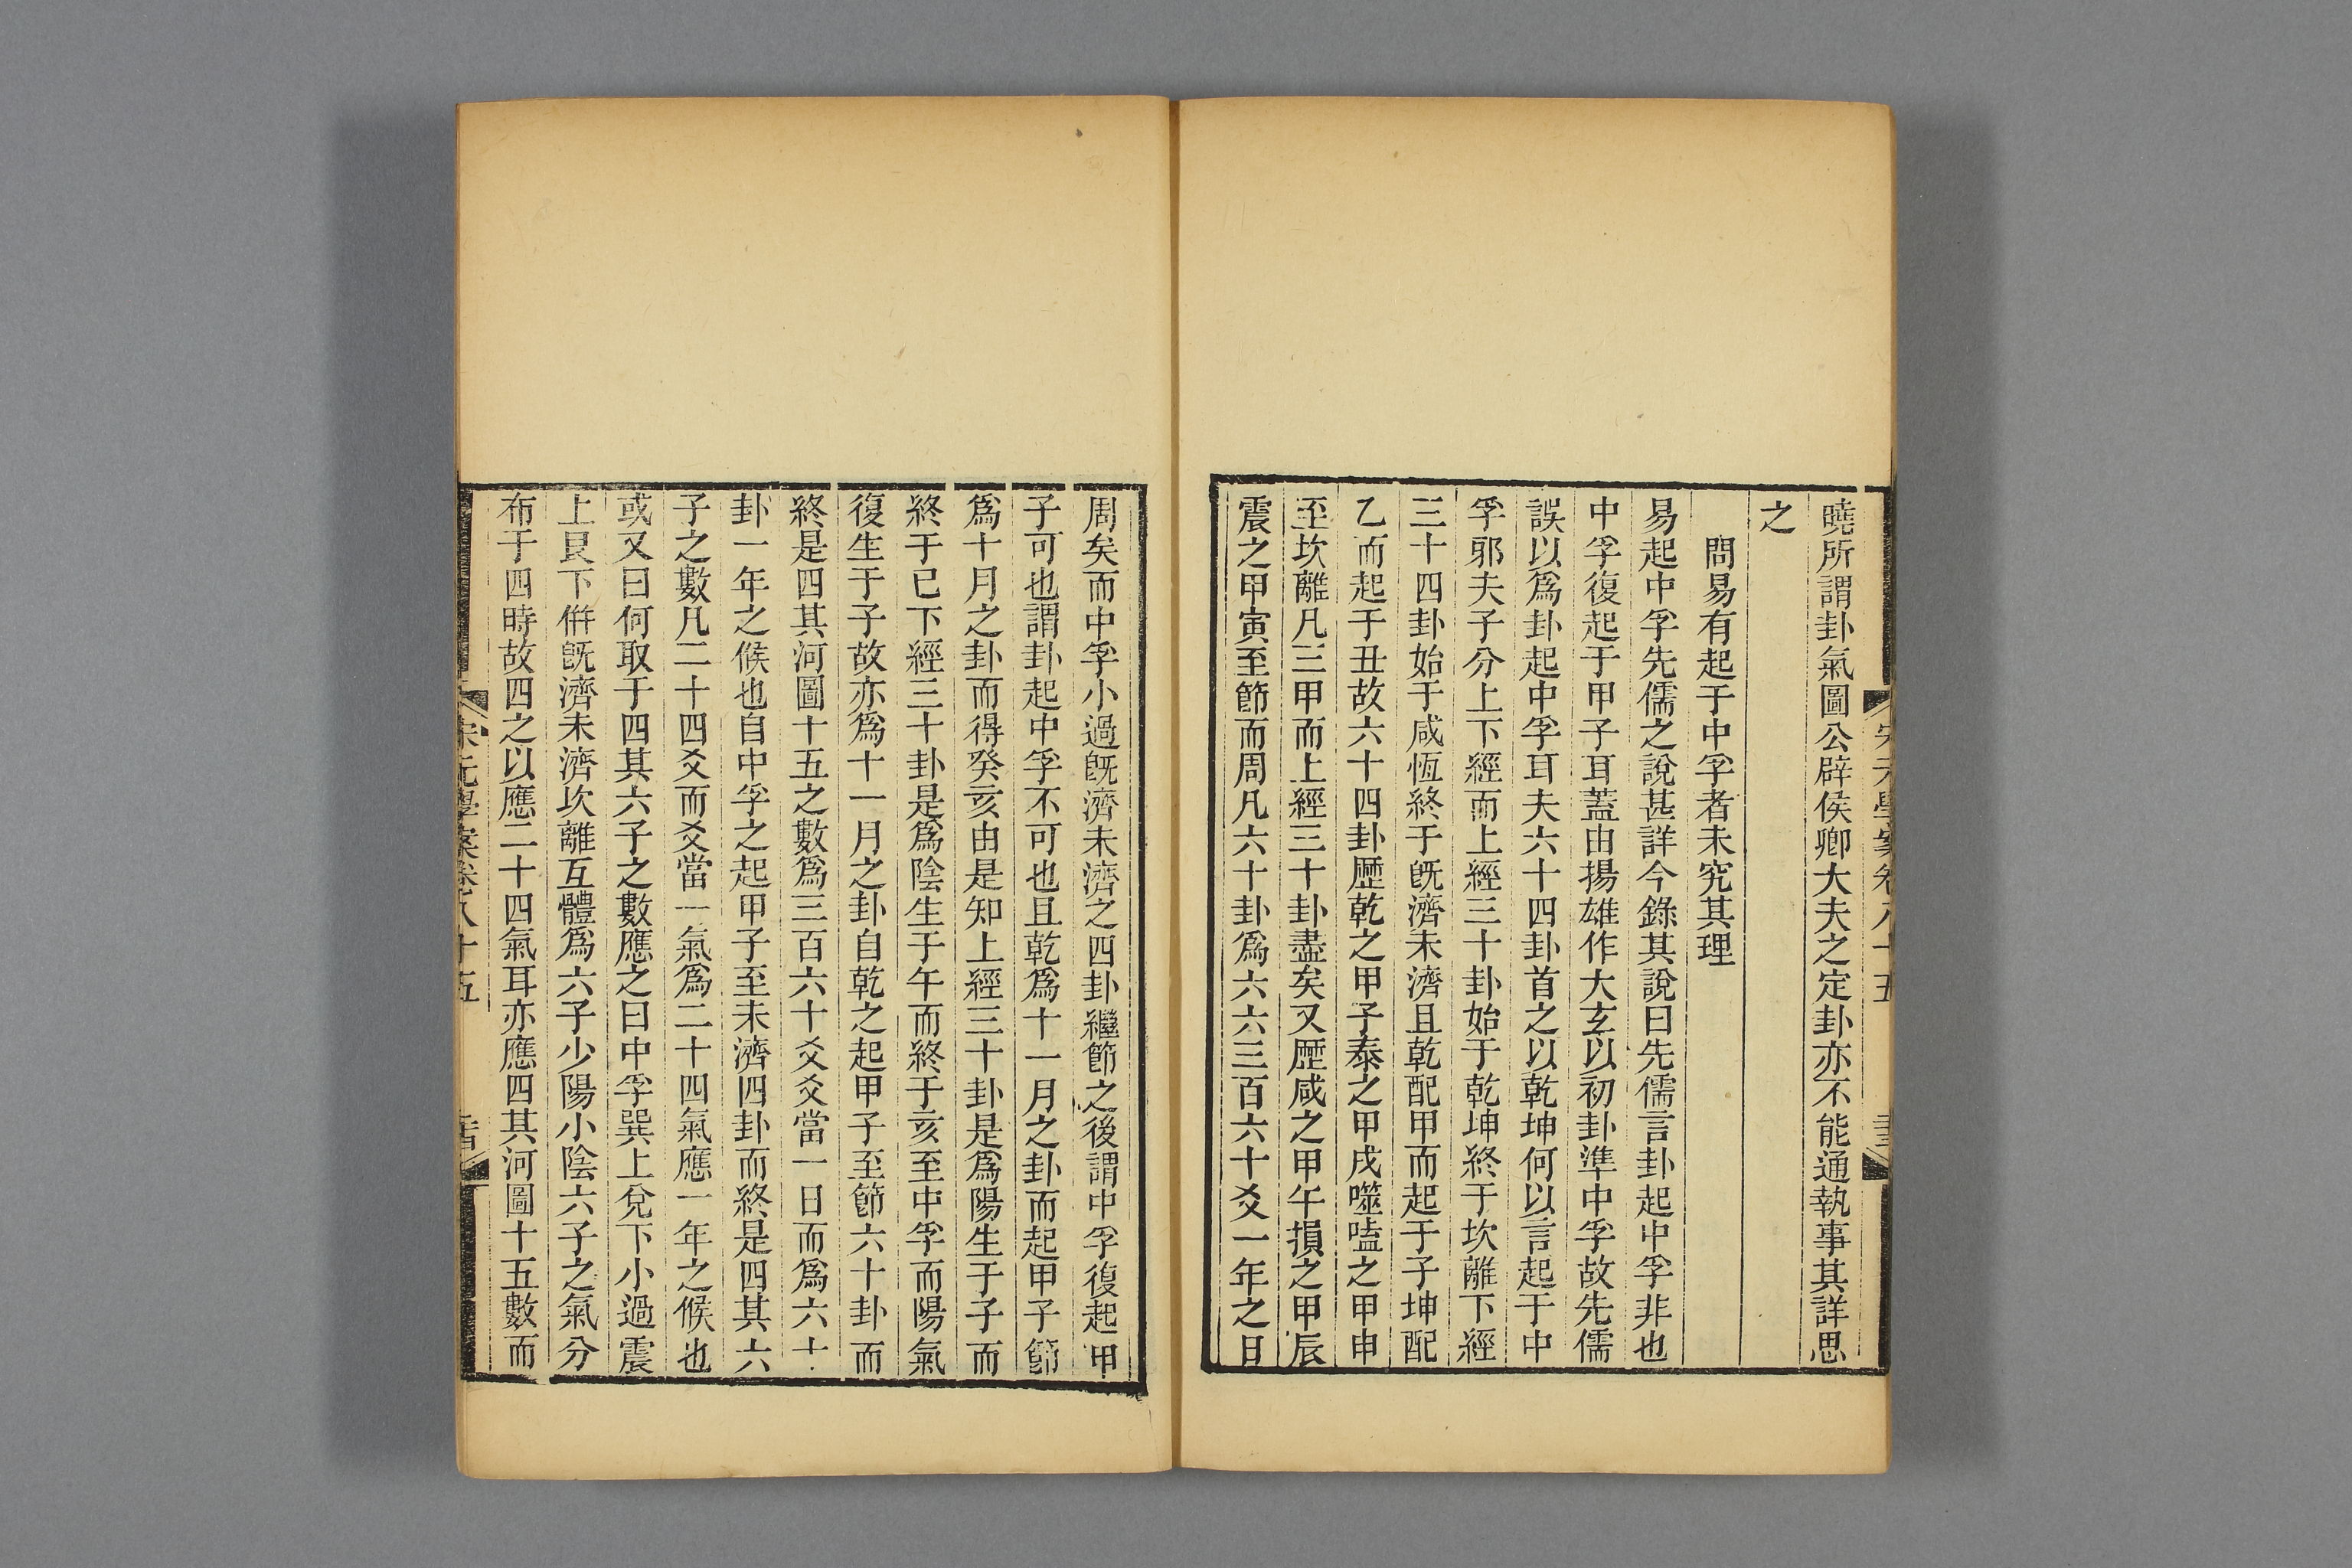 曉所謂卦氣圖公辟侯卿大夫之定卦亦不能通執事其詳思
之
問易有起于中孚者未究其理
易起中孚先儒之說甚詳今錄其說曰先儒言卦起中孚非也
中孚復起于甲子耳蓋由揚雄作大玄以初卦準中孚故先儒
誤以爲卦起中孚耳夫六十四卦首之以乾坤何以言起于中
孚郭夫子分上下經而上經三十卦始于乾坤終于坎離下經
三十四卦始于咸恆終于旣濟未濟且乾配甲而起于子坤配
乙而起于丑故六十四卦歷乾之甲子泰之甲戌噬嗑之甲申
至坎離凡三甲而上經三十卦盡矣又歷咸之甲午損之甲辰
震之甲寅至節而周凡六十卦爲六六三百六十爻一年之日
周矣而中孚小過旣濟未濟之四卦繼節之後謂中孚復起甲
子可也謂卦起中孚不可也且乾爲十一月之卦而起甲子節
爲十月之卦而得癸亥由是知上經三十卦是爲陽生于子而
終于巳下經三十卦是爲陰生于午而終于亥至中孚而陽氣
復生于子故亦爲十一月之卦自乾之起甲子至節六十卦而
終是四其河圖十五之數爲三百六十爻爻當一日而爲六十
卦一年之候也自中孚之起甲子至未濟四卦而終是四其六
子之數凡二十四爻而爻當一氣爲二十四氣應一年之候也
或又曰何取于四其六子之數應之曰中孚巽上兌下小過震
上艮下倂旣濟未濟坎離互體爲六子少陽小陰六子之氣分
布于四時故四之以應二十四氣耳亦應四其河圖十五數而
宋元學案卷八十五